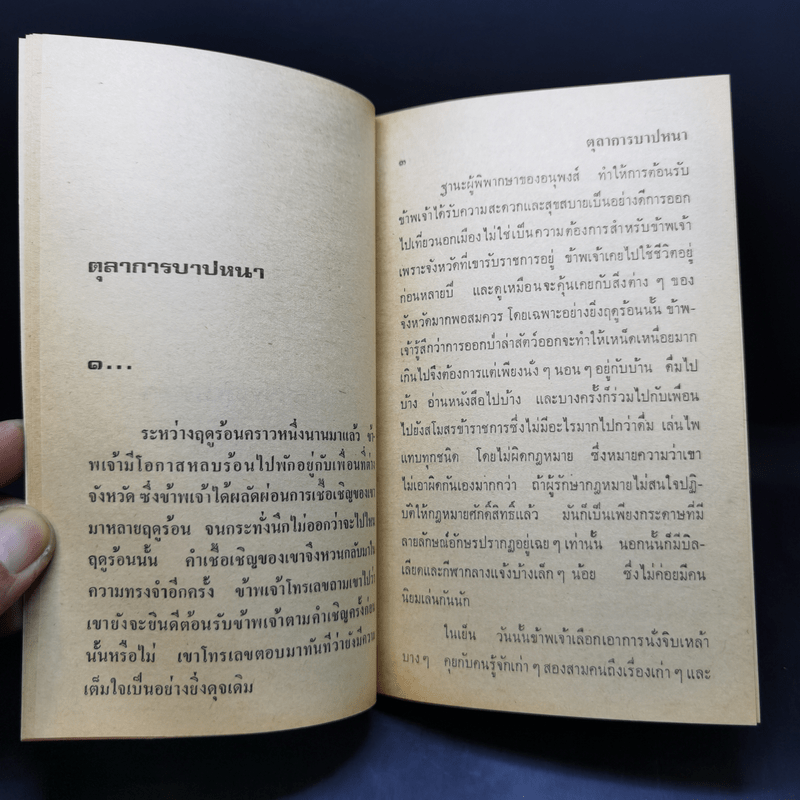 ตุลาการบาปหนา
๑...
ระหว่างฤดูร้อนคราวหนึ่งนานมาแล้ว ข้า
พเจ้ามีโอกาสหลบร้อนไปพักอยู่กับเพื่อนที่ต่าง
จังหวัด ซึ่งข้าพเจ้าได้ผลัดผ่อนการเชื้อเชิญของเขา
มาหลายฤดูร้อน จนกระทั่งนึกไม่ออกว่าจะไปไหน
ฤดูร้อนนั้น คำเชื้อเชิญของเขาจึงหวนกลับมาใน
ความทรงจำอีกครั้ง ข้าพเจ้าโทรเลขถามเขาไปว่า
เขายังจะยินดีต้อนรับข้าพเจ้าตามคำเชิญครั้งก่อน
นั้นหรือไม่ เขาโทรเลขตอบมาทันทีว่ายังมีความ
เต็มใจเป็นอย่างยิ่งดุจเดิม
๓ ตุลาการบาปหนา
ฐานะผู้พิพากษาของอนุพงส์ ทำให้การต้อนรับ
ข้าพเจ้าได้รับความสะดวกและสุขสบายเป็นอย่างดีการออก
ไปเที่ยวนอกเมืองไม่ใช่เป็นความต้องการสำหรับข้าพเจ้า
เพราะจังหวัดที่เขารับราชการอยู่ ข้าพเจ้าเคยไปใช้ชีวิตอยู่
ก่อนหลายปี และดูเหมือนจะคุ้นเคยกับสิ่งต่าง ๆ ของ
จังหวัดมากพอสมควร โดยเฉพาะอย่างยิ่งฤดูร้อนนั้น ข้าพ-
เจ้ารู้สึกว่าการออกป่าล่าสัตว์ออกจะทำให้เหน็ดเหนื่อยมาก
เกินไปจึงต้องการแต่เพียงนั่ง ๆ นอน ๆ อยู่กับบ้าน ดื่มไป
บ้าง อ่านหนังสือไปบ้าง และบางครั้งก็ร่วมไปกับเพื่อน
ไปยังสโมสรข้าราชการซึ่งไม่มีอะไรมากไปกว่าดื่ม เล่นไพ่
แทบทุกชนิด โดยไม่ผิดกฎหมาย ซึ่งหมายความว่าเขา
ไม่เอาผิดกันเองมากกว่า ถ้าผู้รักษากฎหมายไม่สนใจปฏิ-
บัติให้กฎหมายศักดิ์สิทธิ์แล้ว มันก็เป็นเพียงกระดาษที่มี
ลายลักษณ์อักษรปรากฏอยู่เฉย ๆ เท่านั้น นอกนั้นก็มีบิล-
เลียดและกีฬากลางแจ้งบ้างเล็ก ๆ น้อย ซึ่งไม่ค่อยมีคน
นิยมเล่นกันนัก
ในเย็น วันนั้นข้าพเจ้าเลือกเอาการนั่งจิบเหล้า
บาง ๆ คุยกับคนรู้จักเก่า ๆ สองสามคนถึงเรื่องเก่า ๆ และ